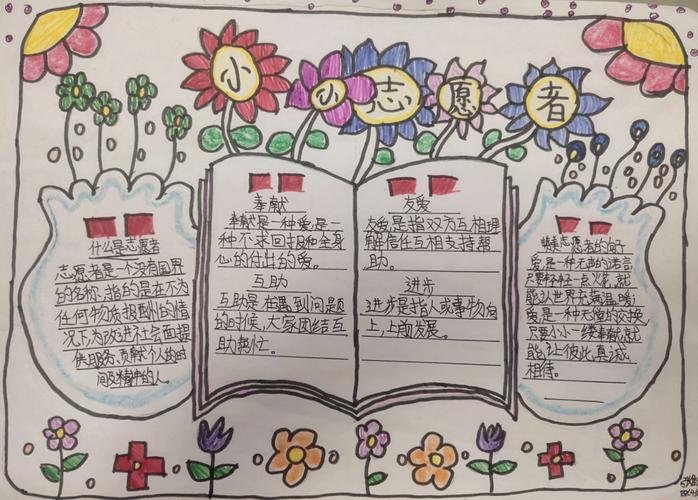 小小志愿者
什么是志愿者
志愿者是一个没有国界
的名称,指的是在不为
任何物质报酬的情
况下,为改进社会而提
供服务、贡献个人的时
间及精神的人。
奉献
奉献是一种爱,是一
种不求回报和全身
心的付出的爱。
互助
互助是在遇到问题
的时候,大家团结互
助帮忙。
友爱
友爱是指双方互相理
解信任互相支持帮
助。
进步
进步是指人或事物向
上,上前发展。
志愿者的句子
爱,是一种无声的语言
只要轻轻一点火花,就
能让世界充满温暖;
爱是一种无偿的交换
只要小小一缕奉献,就
能让彼此真诚
相待。